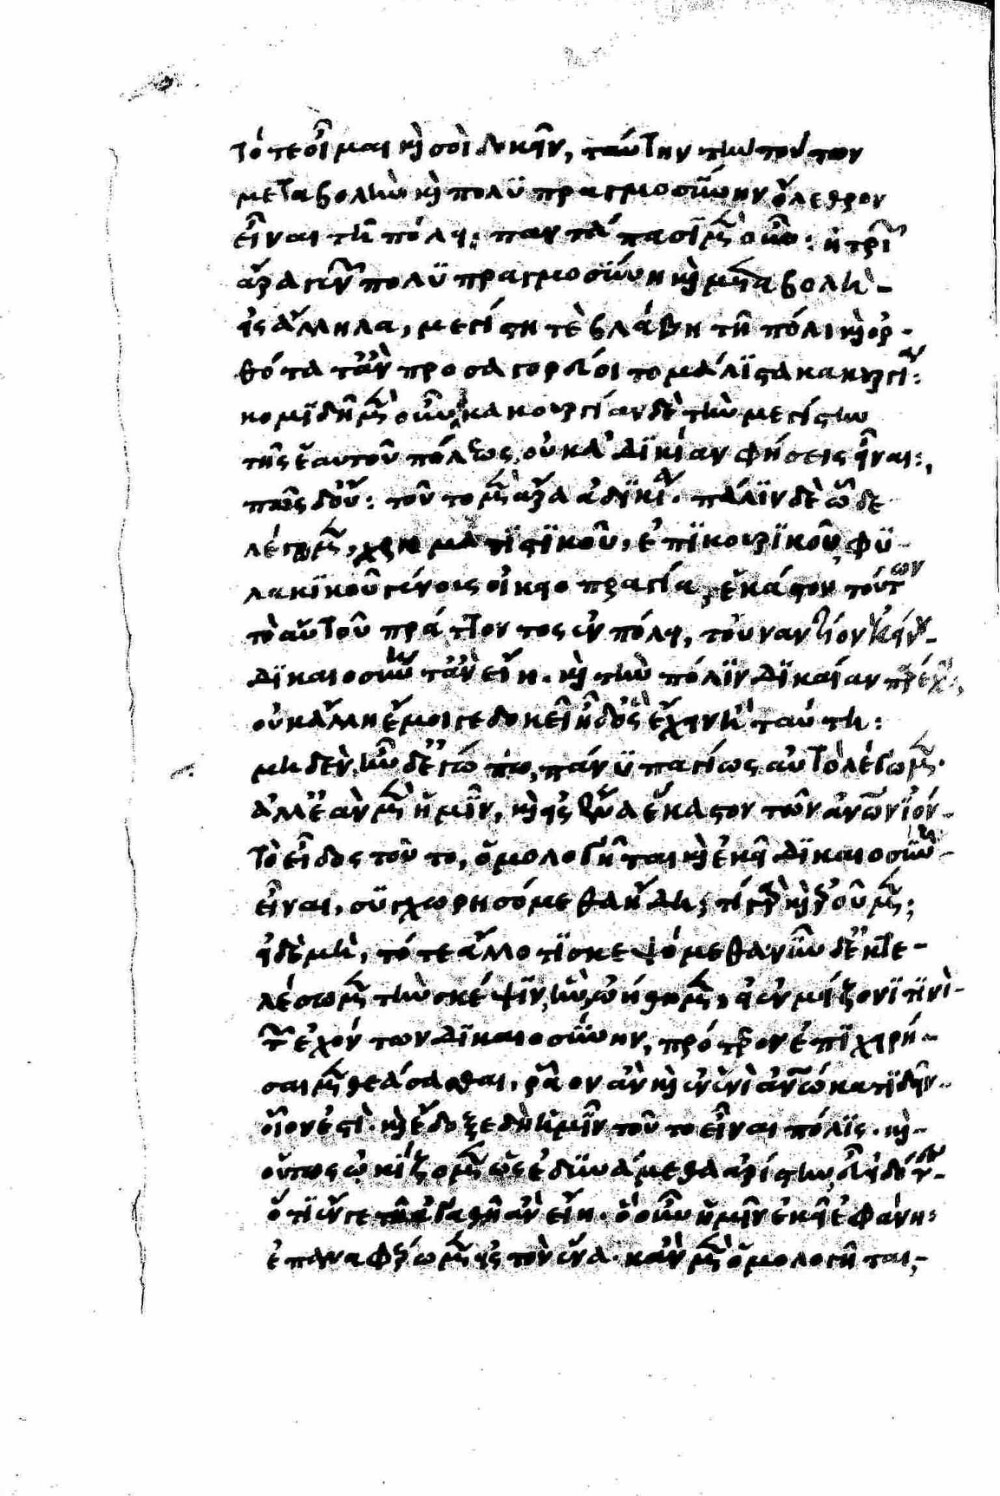 τότε οἶμαι καὶ σοὶ δοκεῖν, ταύτην τὴν τούτων
μεταβολὴν καὶ πολυπραγμοσύνην ὄλεθρον
εἶναι τῆ πόλει; παντάπασι μὲν οὖν: ἡ τριῶν
ἄρα γενῶν πολυπραγμοσύνη καὶ μεταβολὴ
εἰς ἄλληλα, μεγίστη τὲ βλάβη τῆ πόλει καὶ ὀρ-
θότατ' ἂν προσαγορεύοιτο μάλιστα κακουργία:
κομιδῆ μὲν οὖν: κακουργίαν δὲ τὴν μεγίστην
τῆς ἑαυτοῦ πόλεως, οὐκ ἀδικίαν φήσεις εἶναι;
πῶς δ' οὔ: τοῦτο μὲν ἄρα ἀδικία. πάλιν δὲ ὧδε
λέγωμεν, χρηματιστικοῦ, ἐπικουρικοῦ, φυ-
λακικοῦ γένους οἰκειοπραγία, ἑκάστου τούτων
τὸ αὑτοῦ πράττοντος ἐν πόλει, τοὐναντίον ἐκείνου
δικαιοσύνη τ' ἂν εἴη. καὶ τὴν πόλιν δικαίαν παρέχοι;
οὐκ ἄλλη ἔμοιγε δοκεῖ ἦ δ' ὃς ἔχειν ἢ ταύτη:
μηδὲν, ἦν δ' ἐγώ πω, πάνυ παγίως αὐτὸ λέγωμεν.
ἀλλ' ἐὰν μὲν ἡμῖν, καὶ εἰς ἕνα ἕκαστον τῶν ἀνθρώπων ἰόν-
τὸ εἶδος τοῦτο, ὁμολογῆται καὶ ἐκεῖ δικαιοσύνη
εἶναι, συγχωρησόμεθα ἤδη; τί γὰρ καὶ ἐροῦμεν;
εἰ δὲ μὴ, τότε ἄλλο τι σκεψόμεθα. νῦν δ' ἐκτε-
λέσωμεν τὴν σκέψιν, ἣν ὠήθημεν, εἰ ἐν μείζονί τινι
τῶν ἐχόντων δικαιοσύνην, πρότερον ἐπιχειρή-
σαιμεν θεάσασθαι, ῥᾷον ἂν καὶ ἐν ἑνὶ ἀνθρώπω κατιδεῖν
οἷον ἐστί. καὶ ἔδοξε δὴ ἡμῖν τοῦτο εἶναι πόλις. καὶ
οὕτως ὠκίζομεν ὡς ἐδυνάμεθα ἀρίστην, εὖ εἰδότες
ὅτι ἔν γε τῆ ἀγαθῆ ἂν εἴη. ὃ οὖν ἡμῖν ἐκεῖ ἐφάνη:
ἐπαναφέρωμεν εἰς τὸν ἕνα. κἂν μὲν ὁμολογῆται,